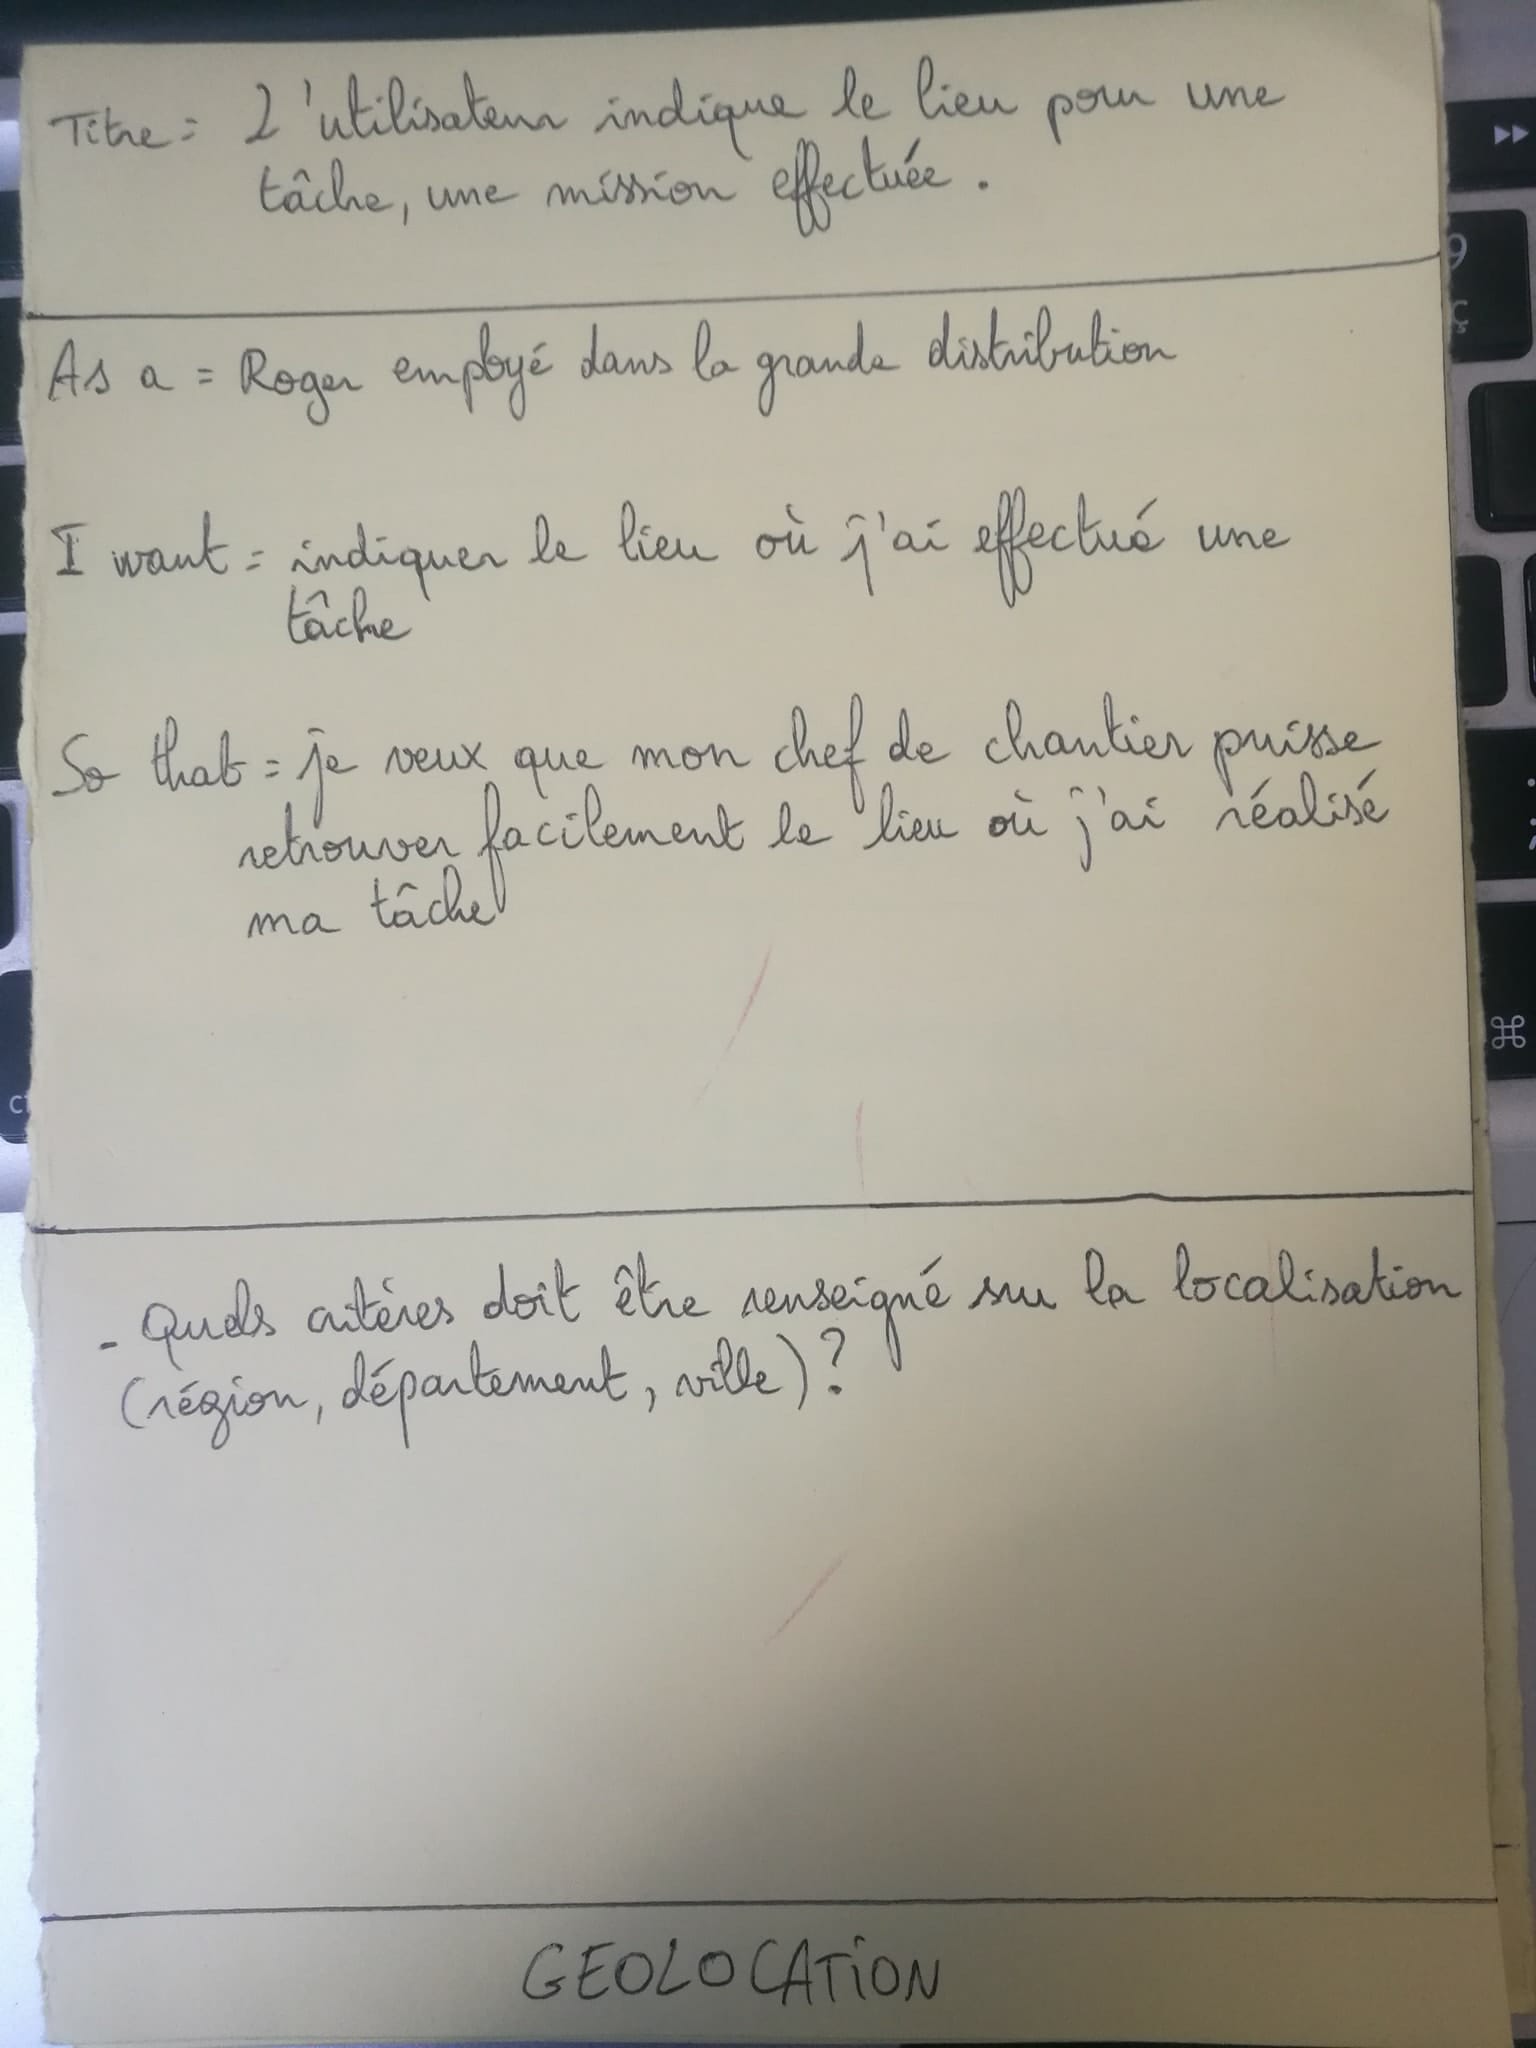 Titre = L'utilisateur indique le lieu pour une
tâche, une mission effectuée.
As a = Roger employé dans la grande distribution
I want = indiquer le lieu où j'ai effectué une
tâche
So that = je veux que mon chef de chantier puisse
retrouver facilement le lieu où j'ai réalisé
ma tâche
- Quels critères doit être renseigné sur la localisation
(région, département, ville) ?
GEOLOCATION
9
ç
⌘